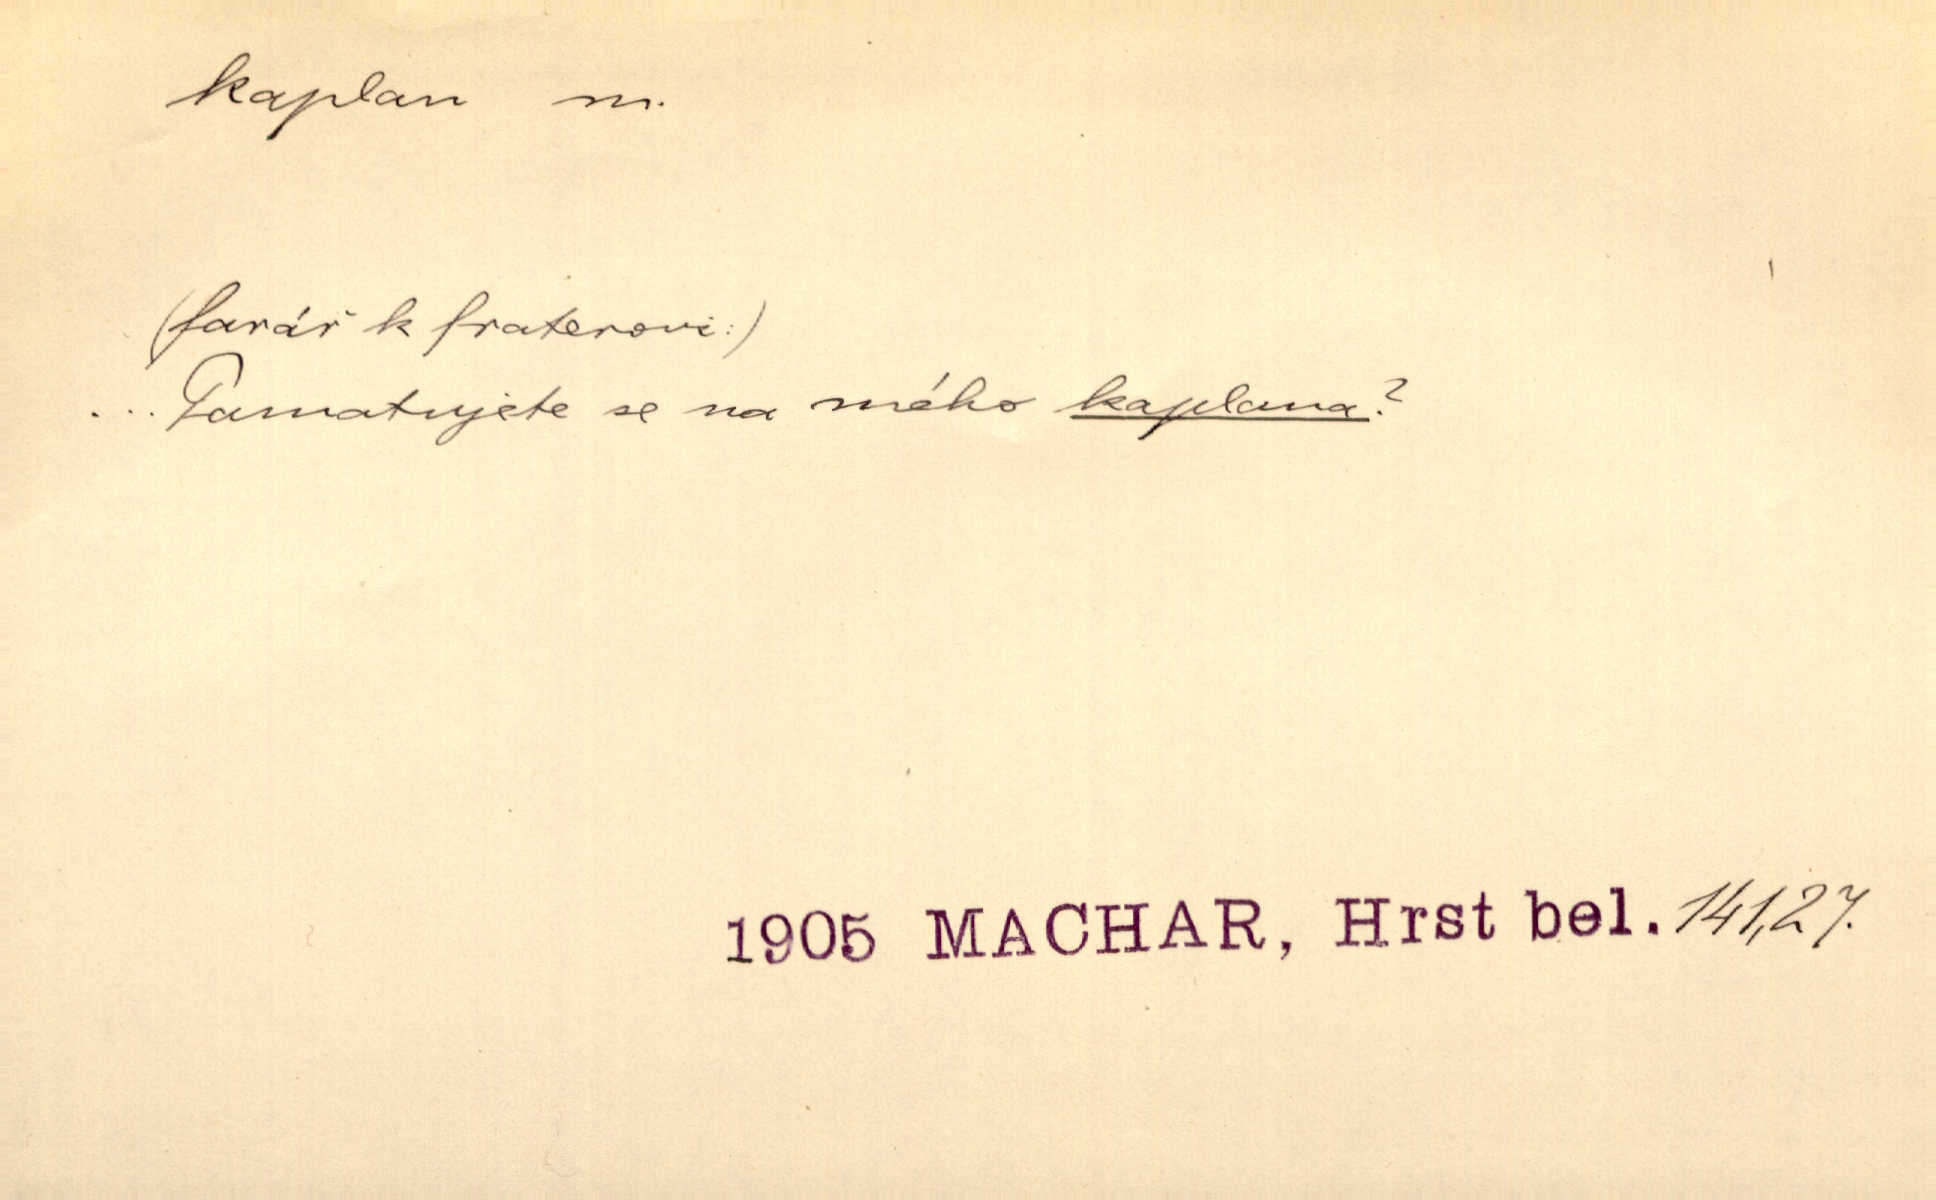 kaplan m.
(farář k fraterovi:)
... Pamatujete se na mého kaplana?
1905 MACHAR, Hrst bel. 141,27.